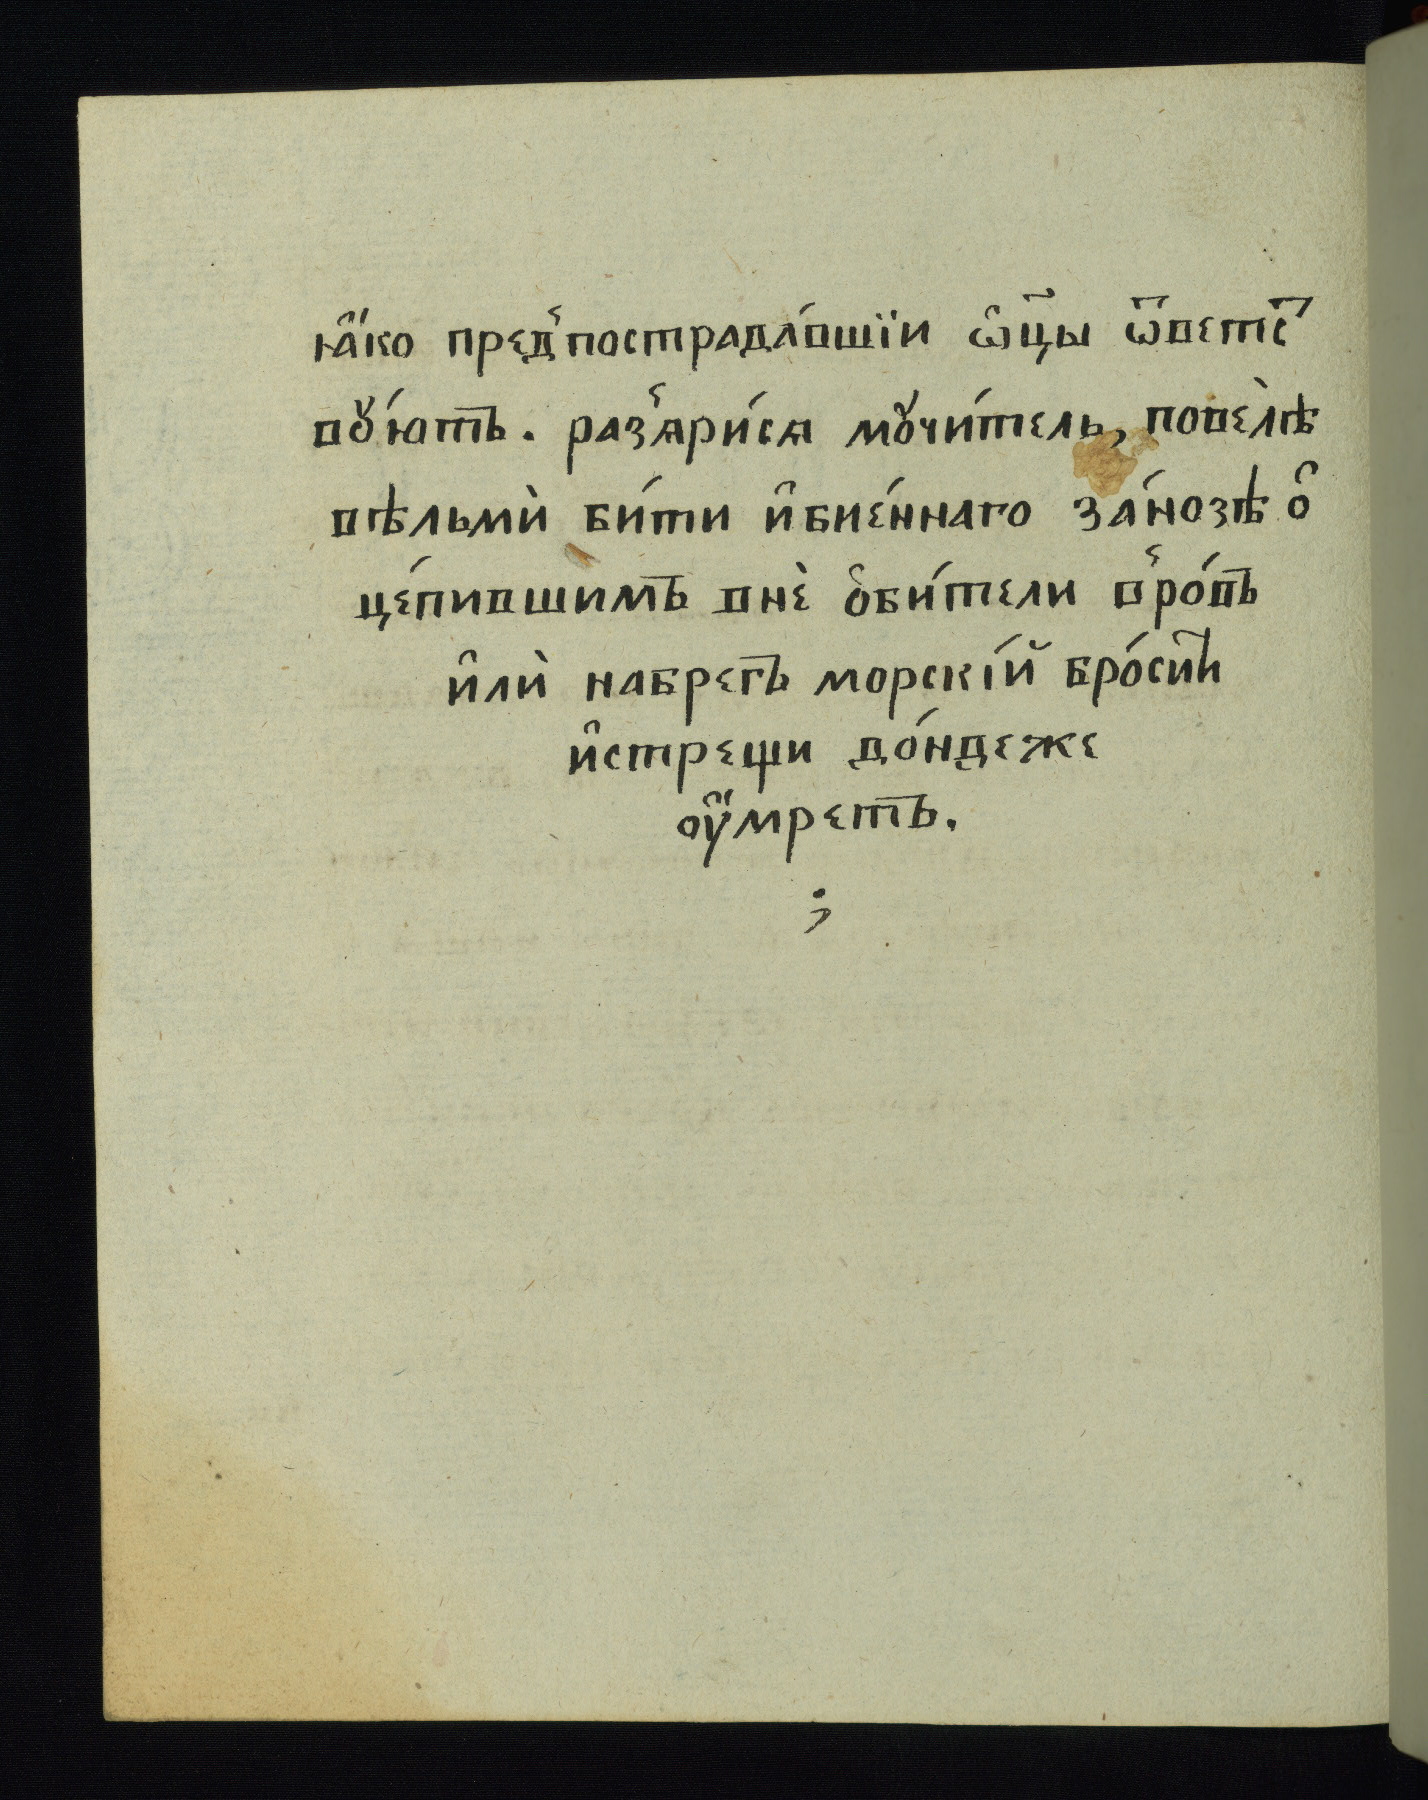 ꙗ҆́ко пред̾пострада́вшїи ѿцы̀ ѿветс
вꙋ́ютъ. раз̾ѧри́сѧ мꙋчи́тель, повелѣ̀
вѣльмѝ би́ти и҆бие́ннаго за́нозѣ о҆
це́пившимъ внѐ ѻ҆би́тели в̾ро́въ
и҆лѝ набрегъ морскі́й бро́сити
и҆стрещи до́ндеже
оу҆́мретъ.
;